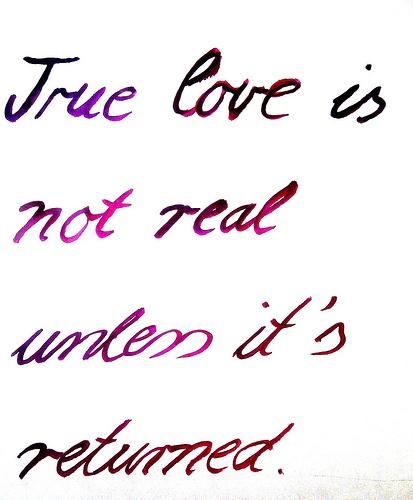 True love is
not real
unless it's
returned.